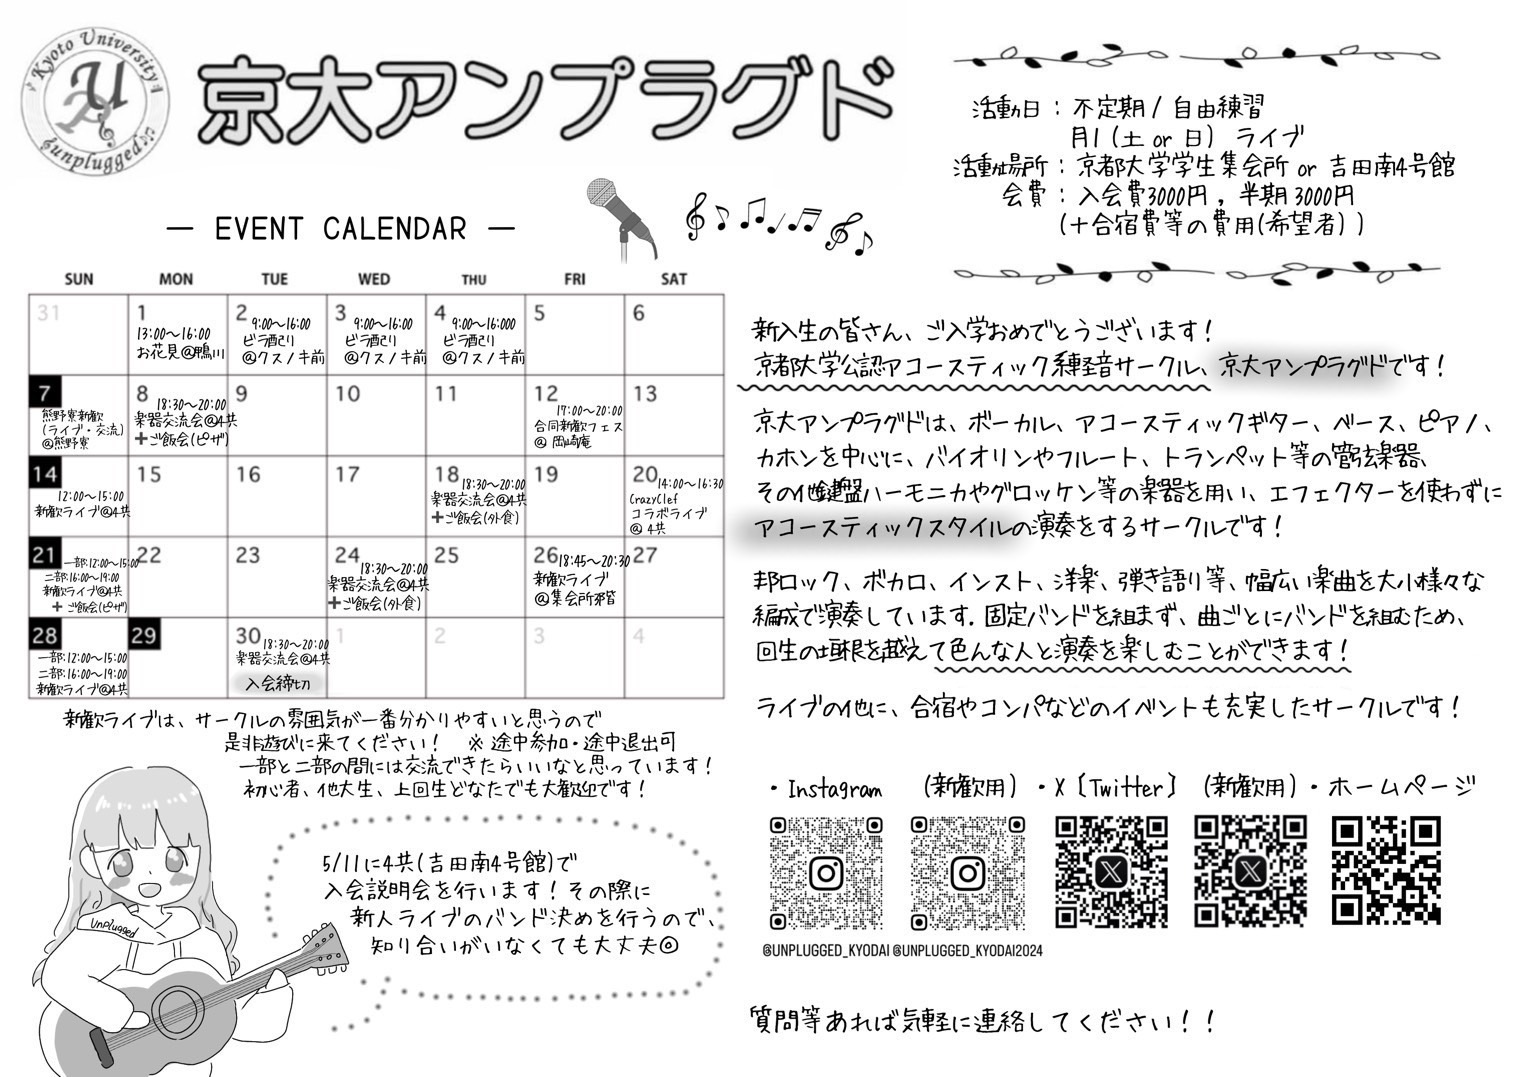 Kyoto University
unplugged
京大アンプラグド
― EVENT CALENDAR ―
SUN MON TUE WED THU FRI SAT
31
1
13:00～16:00
お花見@鴨川
2 9:00～16:00
ビラ配り
@クスノキ前
3 9:00～16:00
ビラ配り
@クスノキ前
4 9:00～16:000
ビラ配り
@クスノキ前
5
6
7
熊野寮新歓
(ライブ・交流)
@熊野寮
8 18:30～20:00
楽器交流会@4共
+ご飯会(ピザ)
9
10
11
12 17:00～20:00
合同新歓フェス
@ 岡崎庵
13
14
12:00～15:00
新歓ライブ@4共
15
16
17
18 18:30～20:00
楽器交流会@4共
+ご飯会(外食)
19
20 14:00～16:30
CrazyClef
コラボライブ
@ 4共
21 一部:12:00～15:00
二部:16:00～19:00
新歓ライブ@4共
+ ご飯会(ピザ)
22
23
24 18:30～20:00
楽器交流会@4共
+ご飯会(外食)
25
26 18:45～20:30
新歓ライブ
@集会所
27
28
一部:12:00～15:00
二部:16:00～19:00
新歓ライブ@4共
29
30 18:30～20:00
楽器交流会@4共
入会締切
1
2
3
4
新歓ライブは、サークルの雰囲気が一番分かりやすいと思うので
是非遊びに来てください！ ※ 途中参加・途中退出可
一部と二部の間には交流できたらいいなと思っています！
初心者、他大生、上回生どなたでも大歓迎です！
Unplugged
5/11に4共(吉田南4号館)で
入会説明会を行います！その際に
新人ライブのバンド決めを行うので、
知り合いがいなくても大丈夫◎
活動日：不定期 / 自由練習
月1 (土 or 日) ライブ
活動場所：京都大学学生集会所 or 吉田南4号館
会費：入会費3000円，半期3000円
(+合宿費等の費用(希望者))
新入生の皆さん、ご入学おめでとうございます！
京都大学公認アコースティック系軽音サークル、京大アンプラグドです！
京大アンプラグドは、ボーカル、アコースティックギター、ベース、ピアノ、
カホンを中心に、バイオリンやフルート、トランペット等の管弦楽器、
その他鍵盤ハーモニカやグロッケン等の楽器を用い、エフェクターを使わずに
アコースティックスタイルの演奏をするサークルです！
邦ロック、ボカロ、インスト、洋楽、弾き語り等、幅広い楽曲を大小様々な
編成で演奏しています。固定バンドを組まず、曲ごとにバンドを組むため、
回生の垣根を越えて色んな人と演奏を楽しむことができます！
ライブの他に、合宿やコンパなどのイベントも充実したサークルです！
・Instagram (新歓用)・X〔Twitter〕(新歓用)・ホームページ
@UNPLUGGED_KYODAI @UNPLUGGED_KYODAI2024
質問等あれば気軽に連絡してください！！